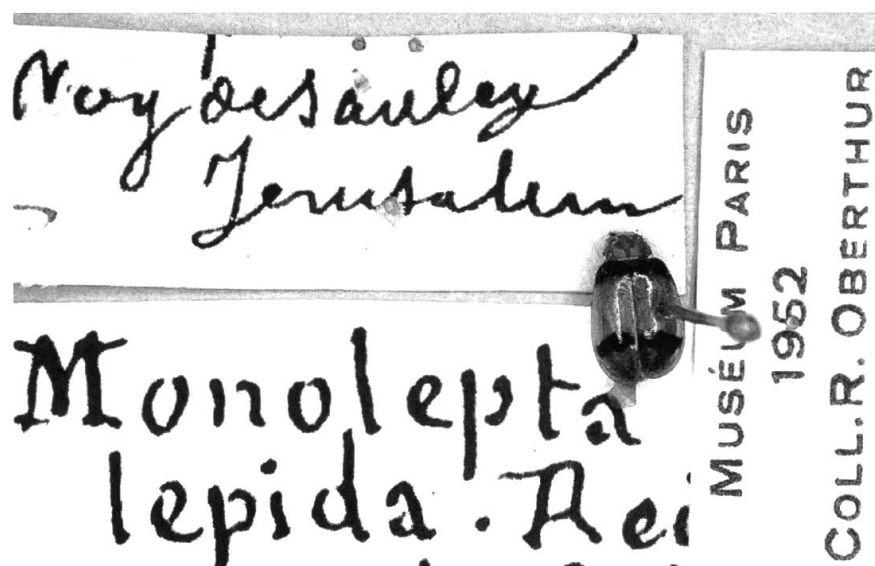 Voy de Saulcy
Jerusalem
Monolepta
lepida. Rei
MUSÉUM PARIS
1952
COLL. R. OBERTHUR